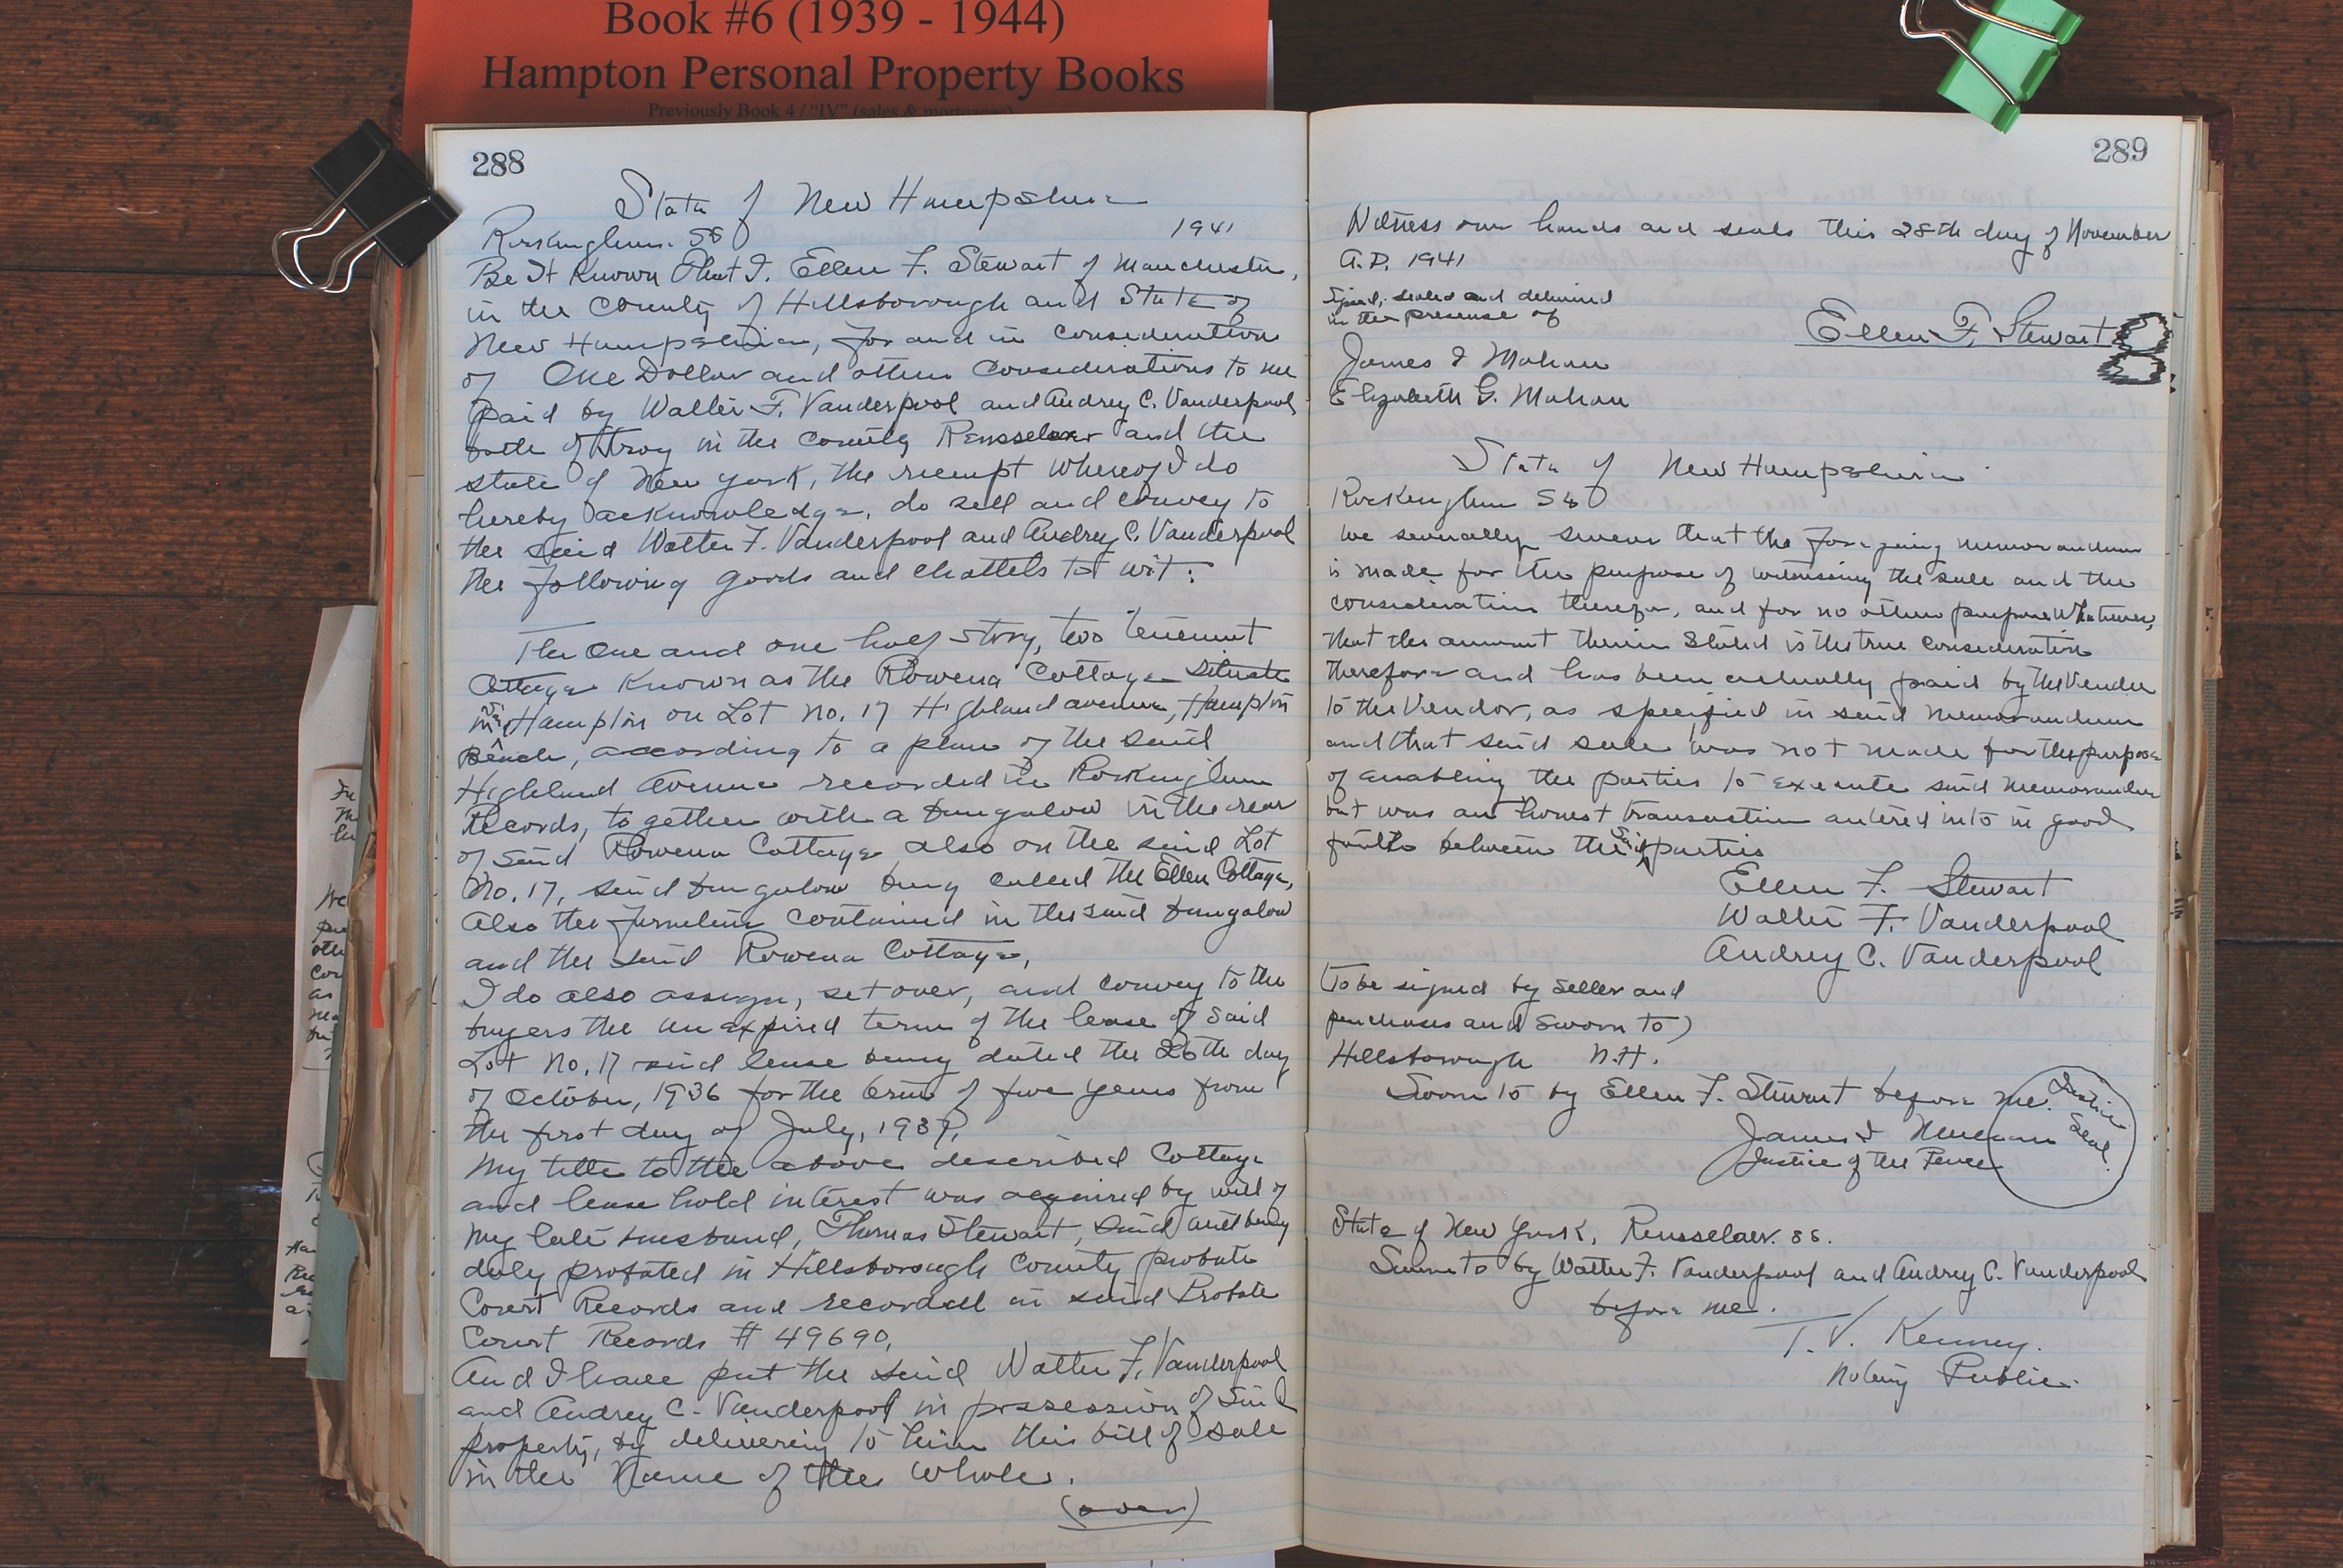 Book #6 (1939 - 1944)
Hampton Personal Property Books
Previously Book 4 / "IV" (sales & mortgages)
288
State of New Hampshire
Rockingham. SS 1941
Be It Known That I. Ellen F. Stewart of Manchester,
in the County of Hillsborough and State of
New Hampshire, for and in consideration
of One Dollar and other considerations to me
paid by Walter F. Vanderpool and Audrey C. Vanderpool
both of Troy in the County Rensselaer and the
state of New York, the receipt whereof I do
hereby acknowledge, do sell and convey to
the said Walter F. Vanderpool and Audrey C. Vanderpool
the following goods and chattels to wit:
The One and one half story, two tenement
Cottage known as the Rowena Cottage situate
in Hampton on Lot No. 17 Highland avenue, Hampton
Beach, according to a plan of the said
Highland Avenue recorded in Rockingham
Records, together with a bungalow in the rear
of said Rowena Cottage also on the said Lot
No. 17, said bungalow being called the Ellen Cottage,
Also the furniture contained in the said bungalow
and the said Rowena Cottage,
I do also assign, set over, and convey to the
buyers the unexpired term of the lease of said
Lot No. 17 said lease being dated the 26th day
of October, 1936 for the term of five years from
the first day of July, 1937.
My title to the above described Cottage
and lease hold interest was acquired by will of
my late husband, Thomas Stewart, said will being
duly probated in Hillsborough County probate
Court Records and recorded in said Probate
Court Records # 49690,
And I have put the said Walter F. Vanderpool
and Audrey C. Vanderpool in possession of said
property, by delivering to him this bill of sale
in the Name of the Whole.
(over)
289
Witness our hands and seals this 28th day of November
A.D. 1941
Signed, sealed and delivered
in the presense of
Ellen F. Stewart
James I Mahan
Elizabeth G. Mahan
State of New Hampshire
Rockingham SS
We severally swear that the foregoing memorandum
is made for the purpose of witnessing the sale and the
consideration therefor, and for no other purpose Whatever,
that the amount therein stated is the true consideration
therefore and has been actually paid by the Vendee
to the Vendor, as specified in said memorandum
and that said sale was not made for the purpose
of enabling the parties to execute said memorandum
but was an honest transaction entered into in good
faith between the said parties
Ellen F. Stewart
Walter F. Vanderpool
Audrey C. Vanderpool
(To be signed by seller and
purchases and sworn to)
Hillsborough N.H.
Sworn to by Ellen F. Stewart before me.
Justice Seal.
James I
Justice of the Peace
State of New York, Rensselaer. SS.
Sworn to by Walter F. Vanderpool and Audrey C. Vanderpool
before me.
T. V. Kenney.
Notary Public.